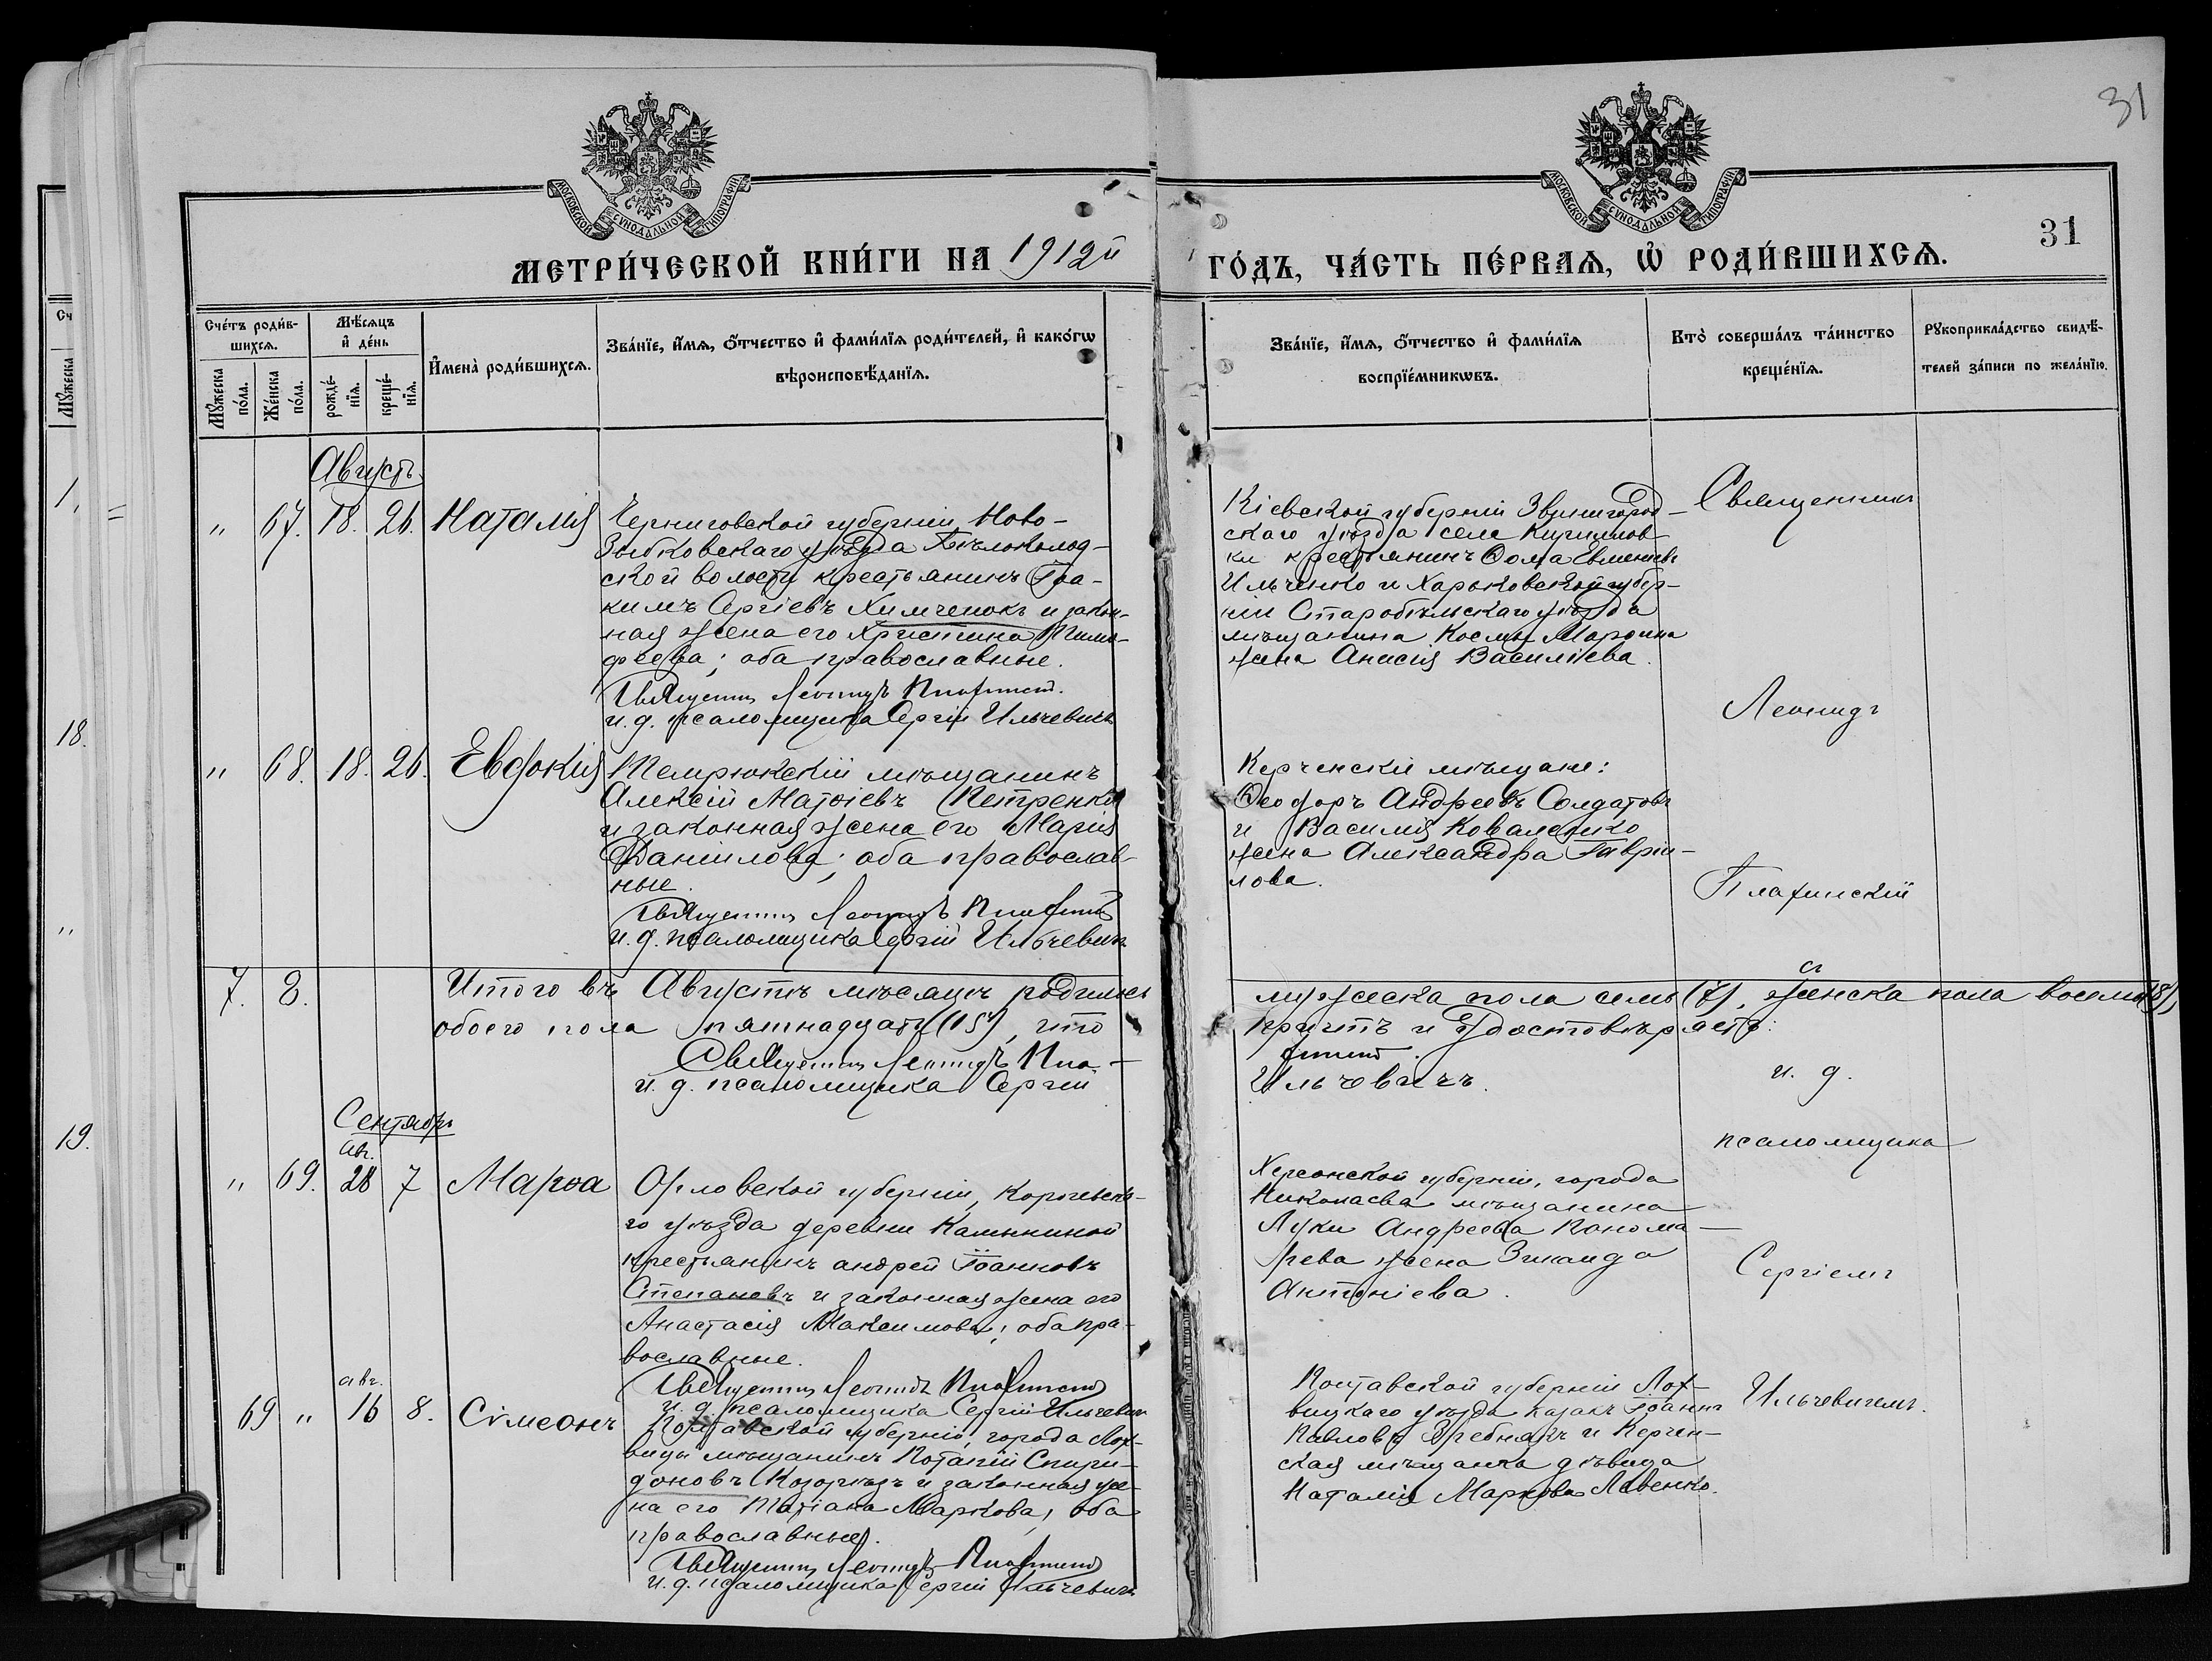 31
МОСКОВСКОЙ СѴНОДАЛЬНОЙ ТИПОГРАФІИ
МОСКОВСКОЙ СѴНОДАЛЬНОЙ ТИПОГРАФІИ
31
МЕТРИ́ЧЕСКОЙ КНИ́ГИ НА 1912й
ГО́ДЪ, ЧА́СТЬ ПЕ́РВАѦ, Ѡ҆ РОДИ́ВШИХСѦ.
Сче́тъ роди́в-
шихсѧ.
Мꙋ́жеска по́ла.
Же́нска по́ла.
Мѣ́сѧцъ
и҆ де́нь
рожде́-
нїѧ.
креще́-
нїѧ.
И҆мена̀ роди́вшихсѧ.
Зва́нїе, и҆́мѧ, ѻ҆́тчество и҆ фами́лїѧ роди́телей, и҆ како́гѡ
вѣроисповѣ́данїѧ.
Зва́нїе, и҆́мѧ, ѻ҆́тчество и҆ фами́лїѧ
воспрїе́мникѡвъ.
Кто̀ соверша́лъ та́инство
креще́нїѧ.
Рꙋкоприкла́дство свидѣ́-
телей за́писи по жела́нїю.
Августъ.
" 67. 18. 26. Наталія
Черниговской губерніи, Ново-
Зыбковскаго уѣзда Бѣлоколод-
ской волости крестьянинъ Іоа-
кимъ Сергіевъ Химченокъ и закон-
ная жена его Христина Тимо-
феева; оба православные.
Священникъ Леонидъ
и. д. псаломщика Сергій Ильчевичъ
Кіевской губерніи Звенигород-
скаго уѣзда села Кириллов-
ки крестьянинъ Ѳома Евменіевъ
Ильченко и Харьковской губер-
ніи Старобѣльскаго уѣзда
мѣщанина Космы
жена Анисія Василіева.
Священникъ
Леонидъ
" 68. 18. 26. Евдокія
Темрюкскій мѣщанинъ
Алексій Матѳіевъ Петренко
и законная жена его Марія
Даніилова; оба православ-
ные.
Священникъ Леонидъ
и. д. псаломщика Сергій Ильчевичъ
Керченскіе мѣщане:
Ѳеодоръ Андреевъ Солдатовъ
и Василія Коваленко
жена Александра Гавріи-
лова.
7. 8.
Итого въ Августѣ мѣсяцѣ родилось
мужеска пола семь (7), женска пола восемь (8),
обоего пола пятнадцать (15), что
причтъ и удостовѣряетъ:
Священникъ Леонидъ
и. д. псаломщика Сергій
Ильчевичъ.
съ
и. д.
псаломщика
Сергіемъ
Ильчевичемъ.
Сентябрь
авг.
" 69. 28 7 Марѳа
Орловской губерніи, Корочевска-
го уѣзда деревни Калининой
крестьянинъ андрей Іоанновъ
Степановъ и законная жена его
Анастасія Максимова; оба пра-
вославные.
Священникъ Леонидъ
и. д. псаломщика Сергій Ильчевичъ
Херсонской губерніи, города
Николаева мѣщанина
Луки Андреева Понома-
рева жена Зинаида
Антоніева.
авг.
69 " 16 8. Сѵмеонъ
Полтавской губерніи, города Лох-
вицы мѣщанинъ Потапій Спири-
доновъ и законная же-
на его Татіана Маркова, оба
православные.
Священникъ Леонидъ
и. д. псаломщика Сергій Ильчевичъ
Полтавской губерніи Лох-
вицкаго уѣзда казакъ Іоаннъ
Павловъ Гребнякъ и Керчен-
ская мѣщанка дѣвица
Наталія Маркова Лавенко.